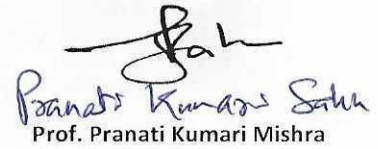 Pranati Kumari Sahu
Prof. Pranati Kumari Mishra